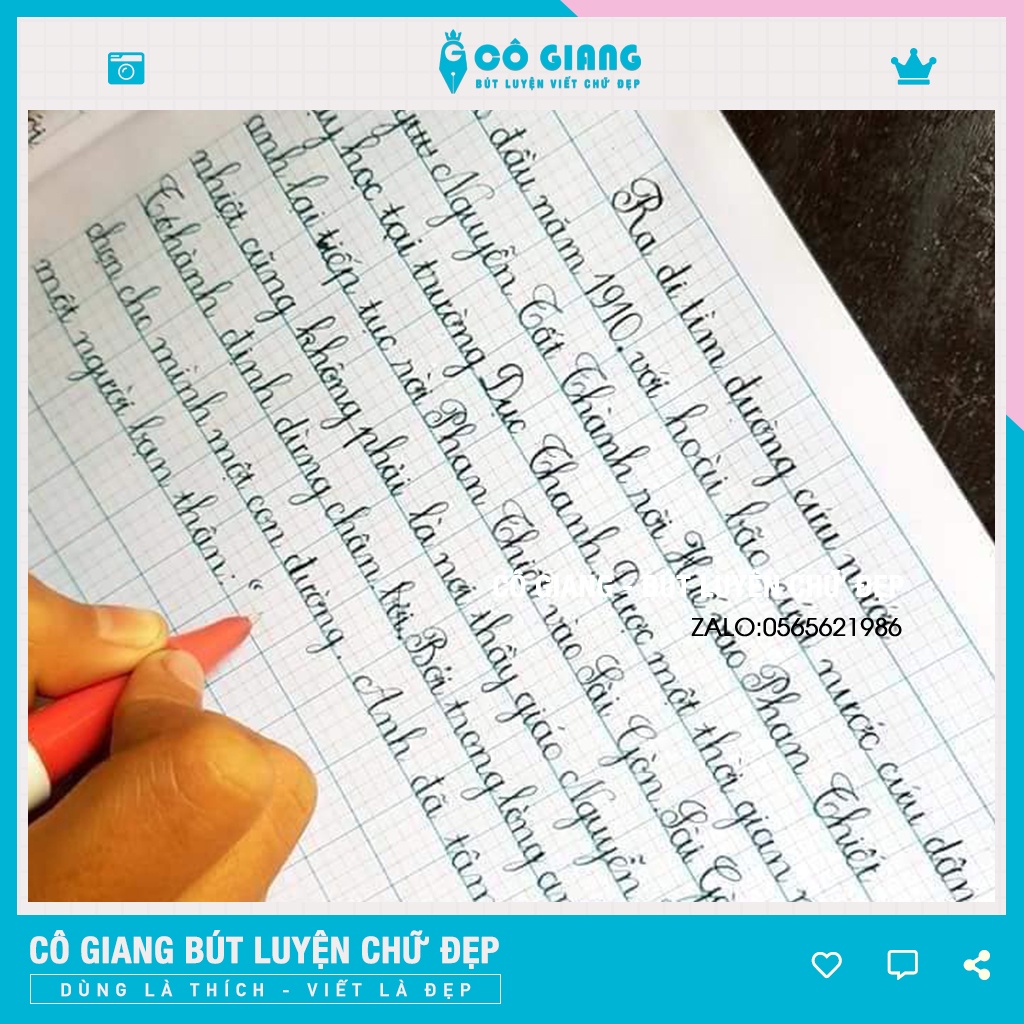 CÔ GIANG
BÚT LUYỆN VIẾT CHỮ ĐẸP
Ra đi tìm đường cứu nước
đầu năm 1910, với hoài bão cứu nước cứu dân
Nguyễn Tất Thành rời Huế vào Phan Thiết
học tại trường Dục Thanh. Được một thời gian
anh lại tiếp tục rời Phan Thiết vào Sài Gòn. Sài
nhiệt cũng không phải là nơi thầy giáo Nguyễn
Tất Thành định dừng chân bởi. Bởi trong lòng
chọn cho mình một con đường. Anh đã
một người bạn thân: "
CÔ GIANG - BÚT LUYỆN CHỮ ĐẸP
ZALO:0565621986
CÔ GIANG BÚT LUYỆN CHỮ ĐẸP
DÙNG LÀ THÍCH - VIẾT LÀ ĐẸP